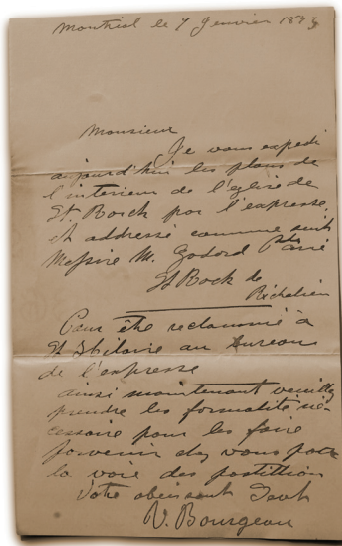 Montreal le 7 Janvier 188
Monsieur
Je vous expedi
aujourd'hui les plans de
l'interieur de l'église de
St. Rock par l'expresse.
et addressé comme suit
Messire M. Godard Ptre Curé
St Rock de
Richelieu
Pour être reclammé à
St Hilaire au Bureau
de l'expresse
ainsi maintenant veuillez
prendre les formalité né-
cessaire pour les faire
parvenir chez vous par
la voie des postillion
Votre obeissant Servt
V. Bourgeau